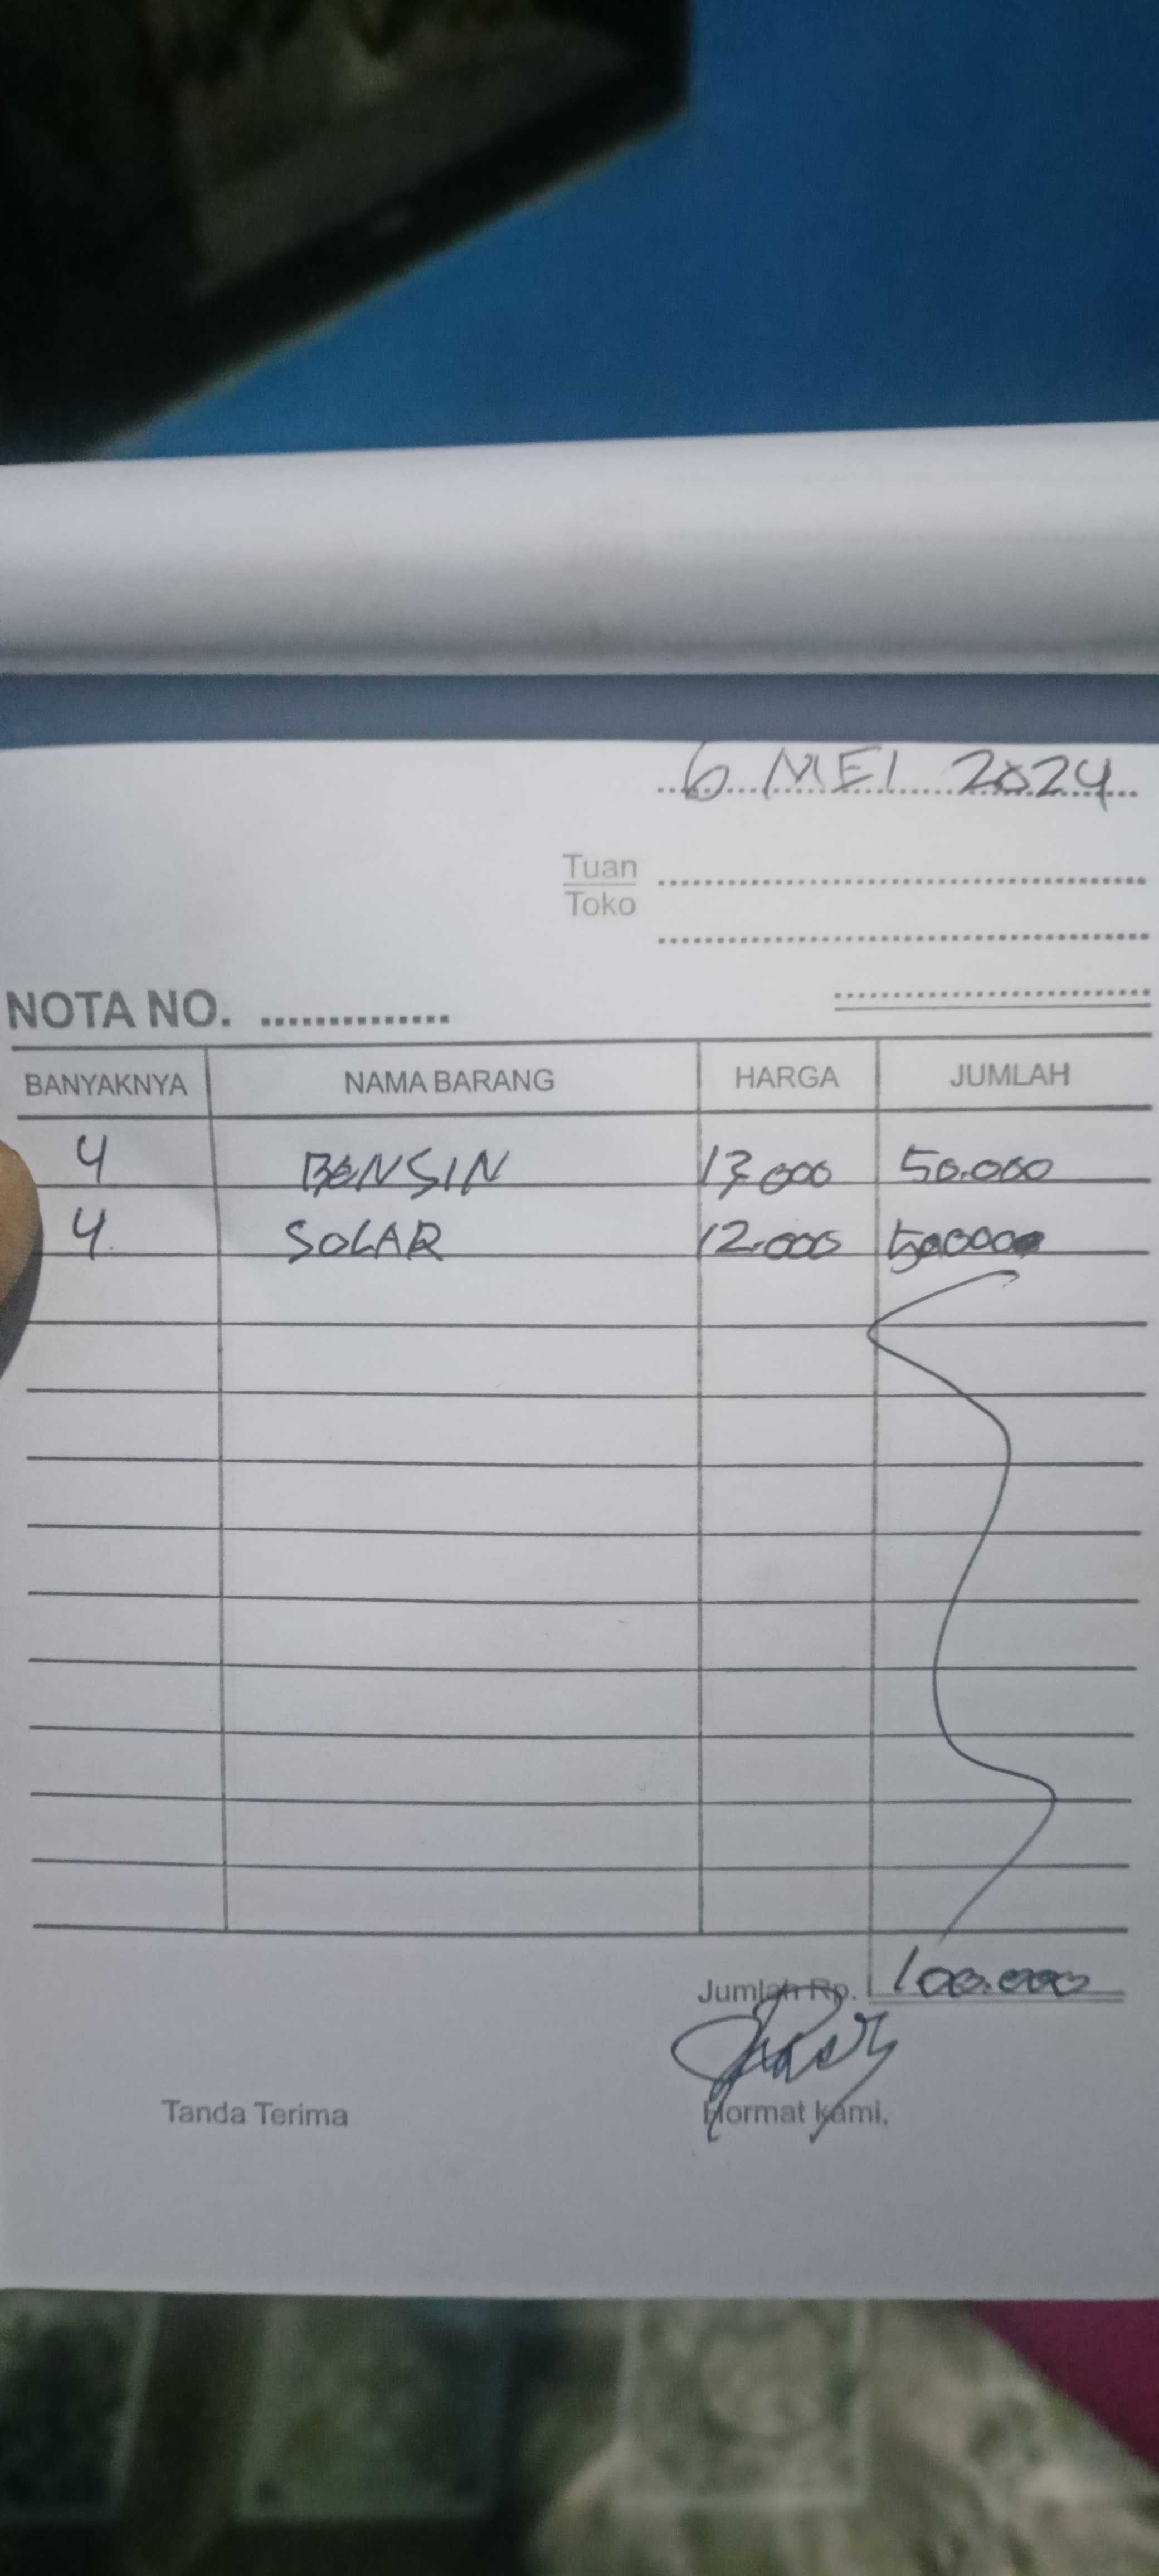 6 MEI 2024
Tuan
Toko
NOTA NO.
BANYAKNYA NAMA BARANG HARGA JUMLAH
4 BENSIN 13.000 50.000
4 SOLAR 12.000 50.000
Jumlah Rp. 100.000
Tanda Terima Hormat kami,